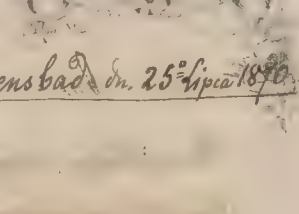 ensbad dn. 25º Lipca 1870.